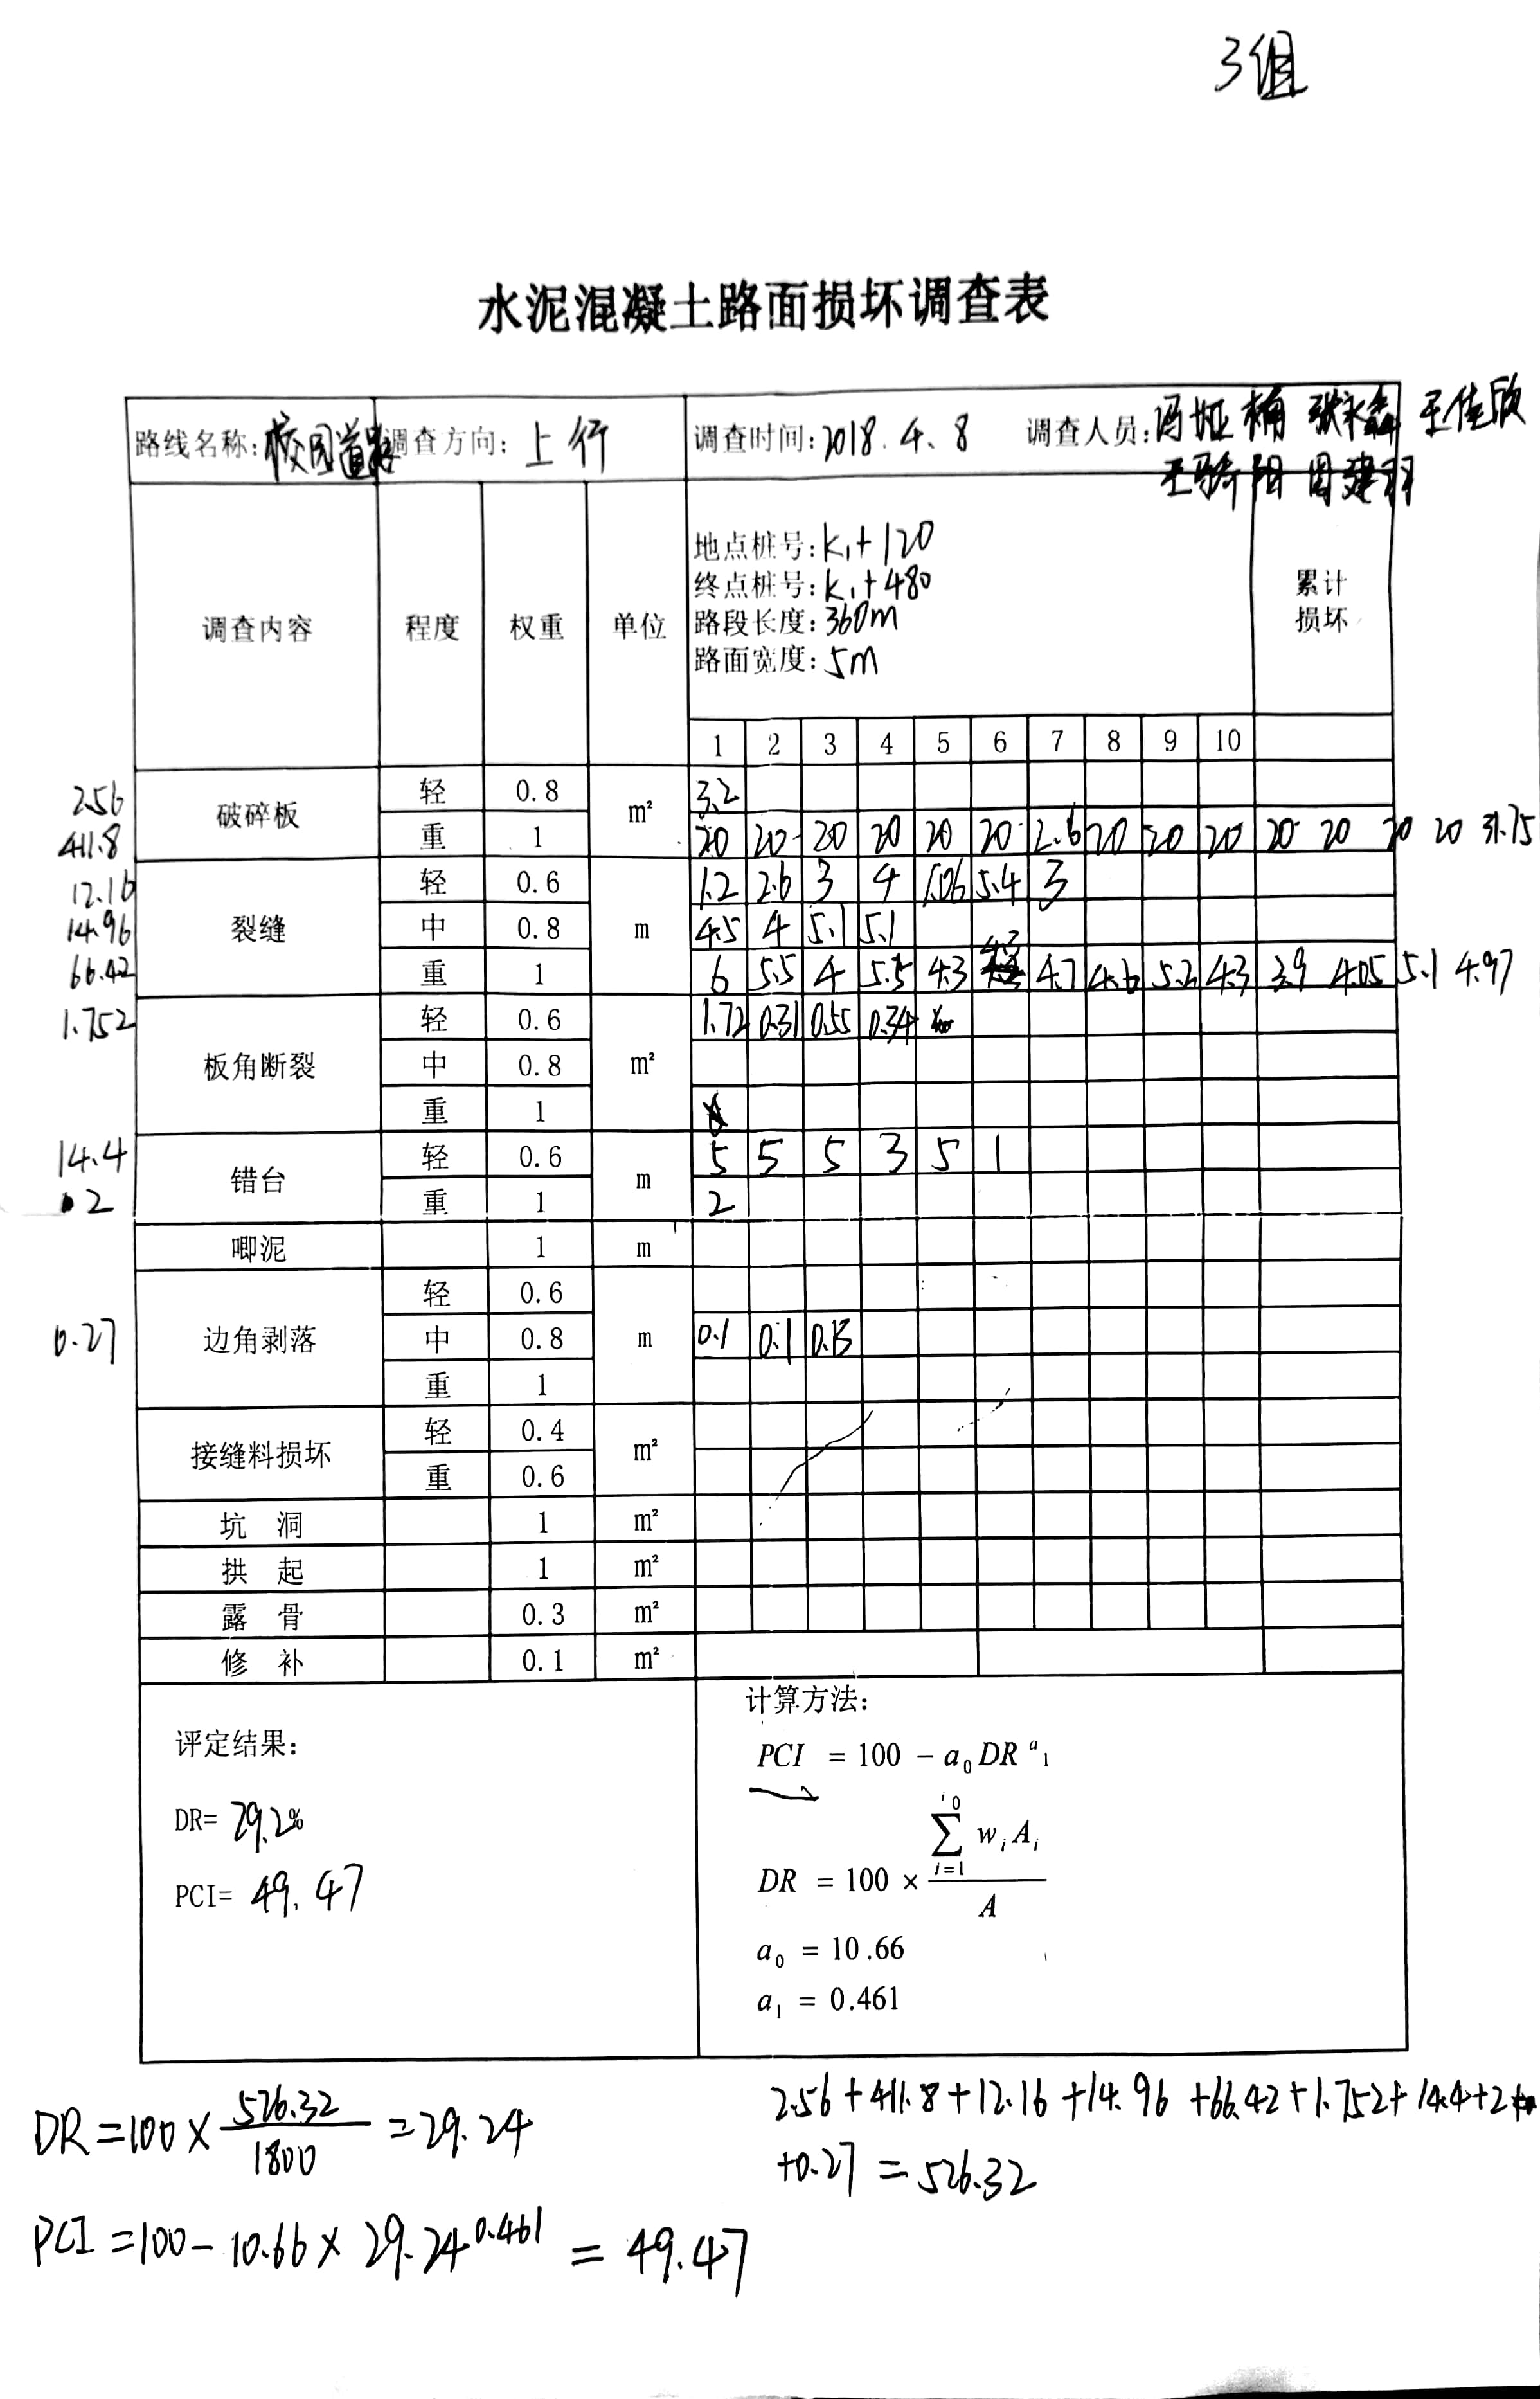 3组
水泥混凝土路面损坏调查表
路线名称:校园道路 调查方向:上行 调查时间:2018.4.8 调查人员:冯 楠 张 王佳欣
王 阳 周建
地点桩号:K1+120
终点桩号:K1+480
路段长度:360m
路面宽度:5m
调查内容 程度 权重 单位 累计
损坏
1 2 3 4 5 6 7 8 9 10
2.56 破碎板 轻 0.8 m² 3.2
411.8 重 1 20 20 20 20 20 20 2.6 20 20 20 20 20 20 20 31.75
12.16 裂缝 轻 0.6 m 1.2 2.6 3 4 1.06 5.4 3
14.96 中 0.8 4.5 4 5.1 5.1
66.42 重 1 6 5.5 4 5.5 4.3 4.3 4.7 4.6 5.2 4.3 3.9 4.05 5.1 4.97
1.752 板角断裂 轻 0.6 m² 1.72 0.31 0.55 0.34
中 0.8
重 1
14.4 错台 轻 0.6 m 5 5 5 3 5 1
2 重 1 2
唧泥 1 m
边角剥落 轻 0.6 m
0.27 中 0.8 0.1 0.1 0.13
重 1
接缝料损坏 轻 0.4 m²
重 0.6
坑 洞 1 m²
拱 起 1 m²
露 骨 0.3 m²
修 补 0.1 m²
评定结果:
DR= 29.2%
PCI= 49.47
计算方法:
PCI = 100 - a₀DR^a₁
DR = 100 × ∑ i=1 i₀ wᵢAᵢ / A
a₀ = 10.66
a₁ = 0.461
DR=100×526.32/1800=29.24
PCI=100-10.66×29.24^0.461=49.47
2.56+411.8+12.16+14.96+66.42+1.752+14.4+2
+0.27=526.32